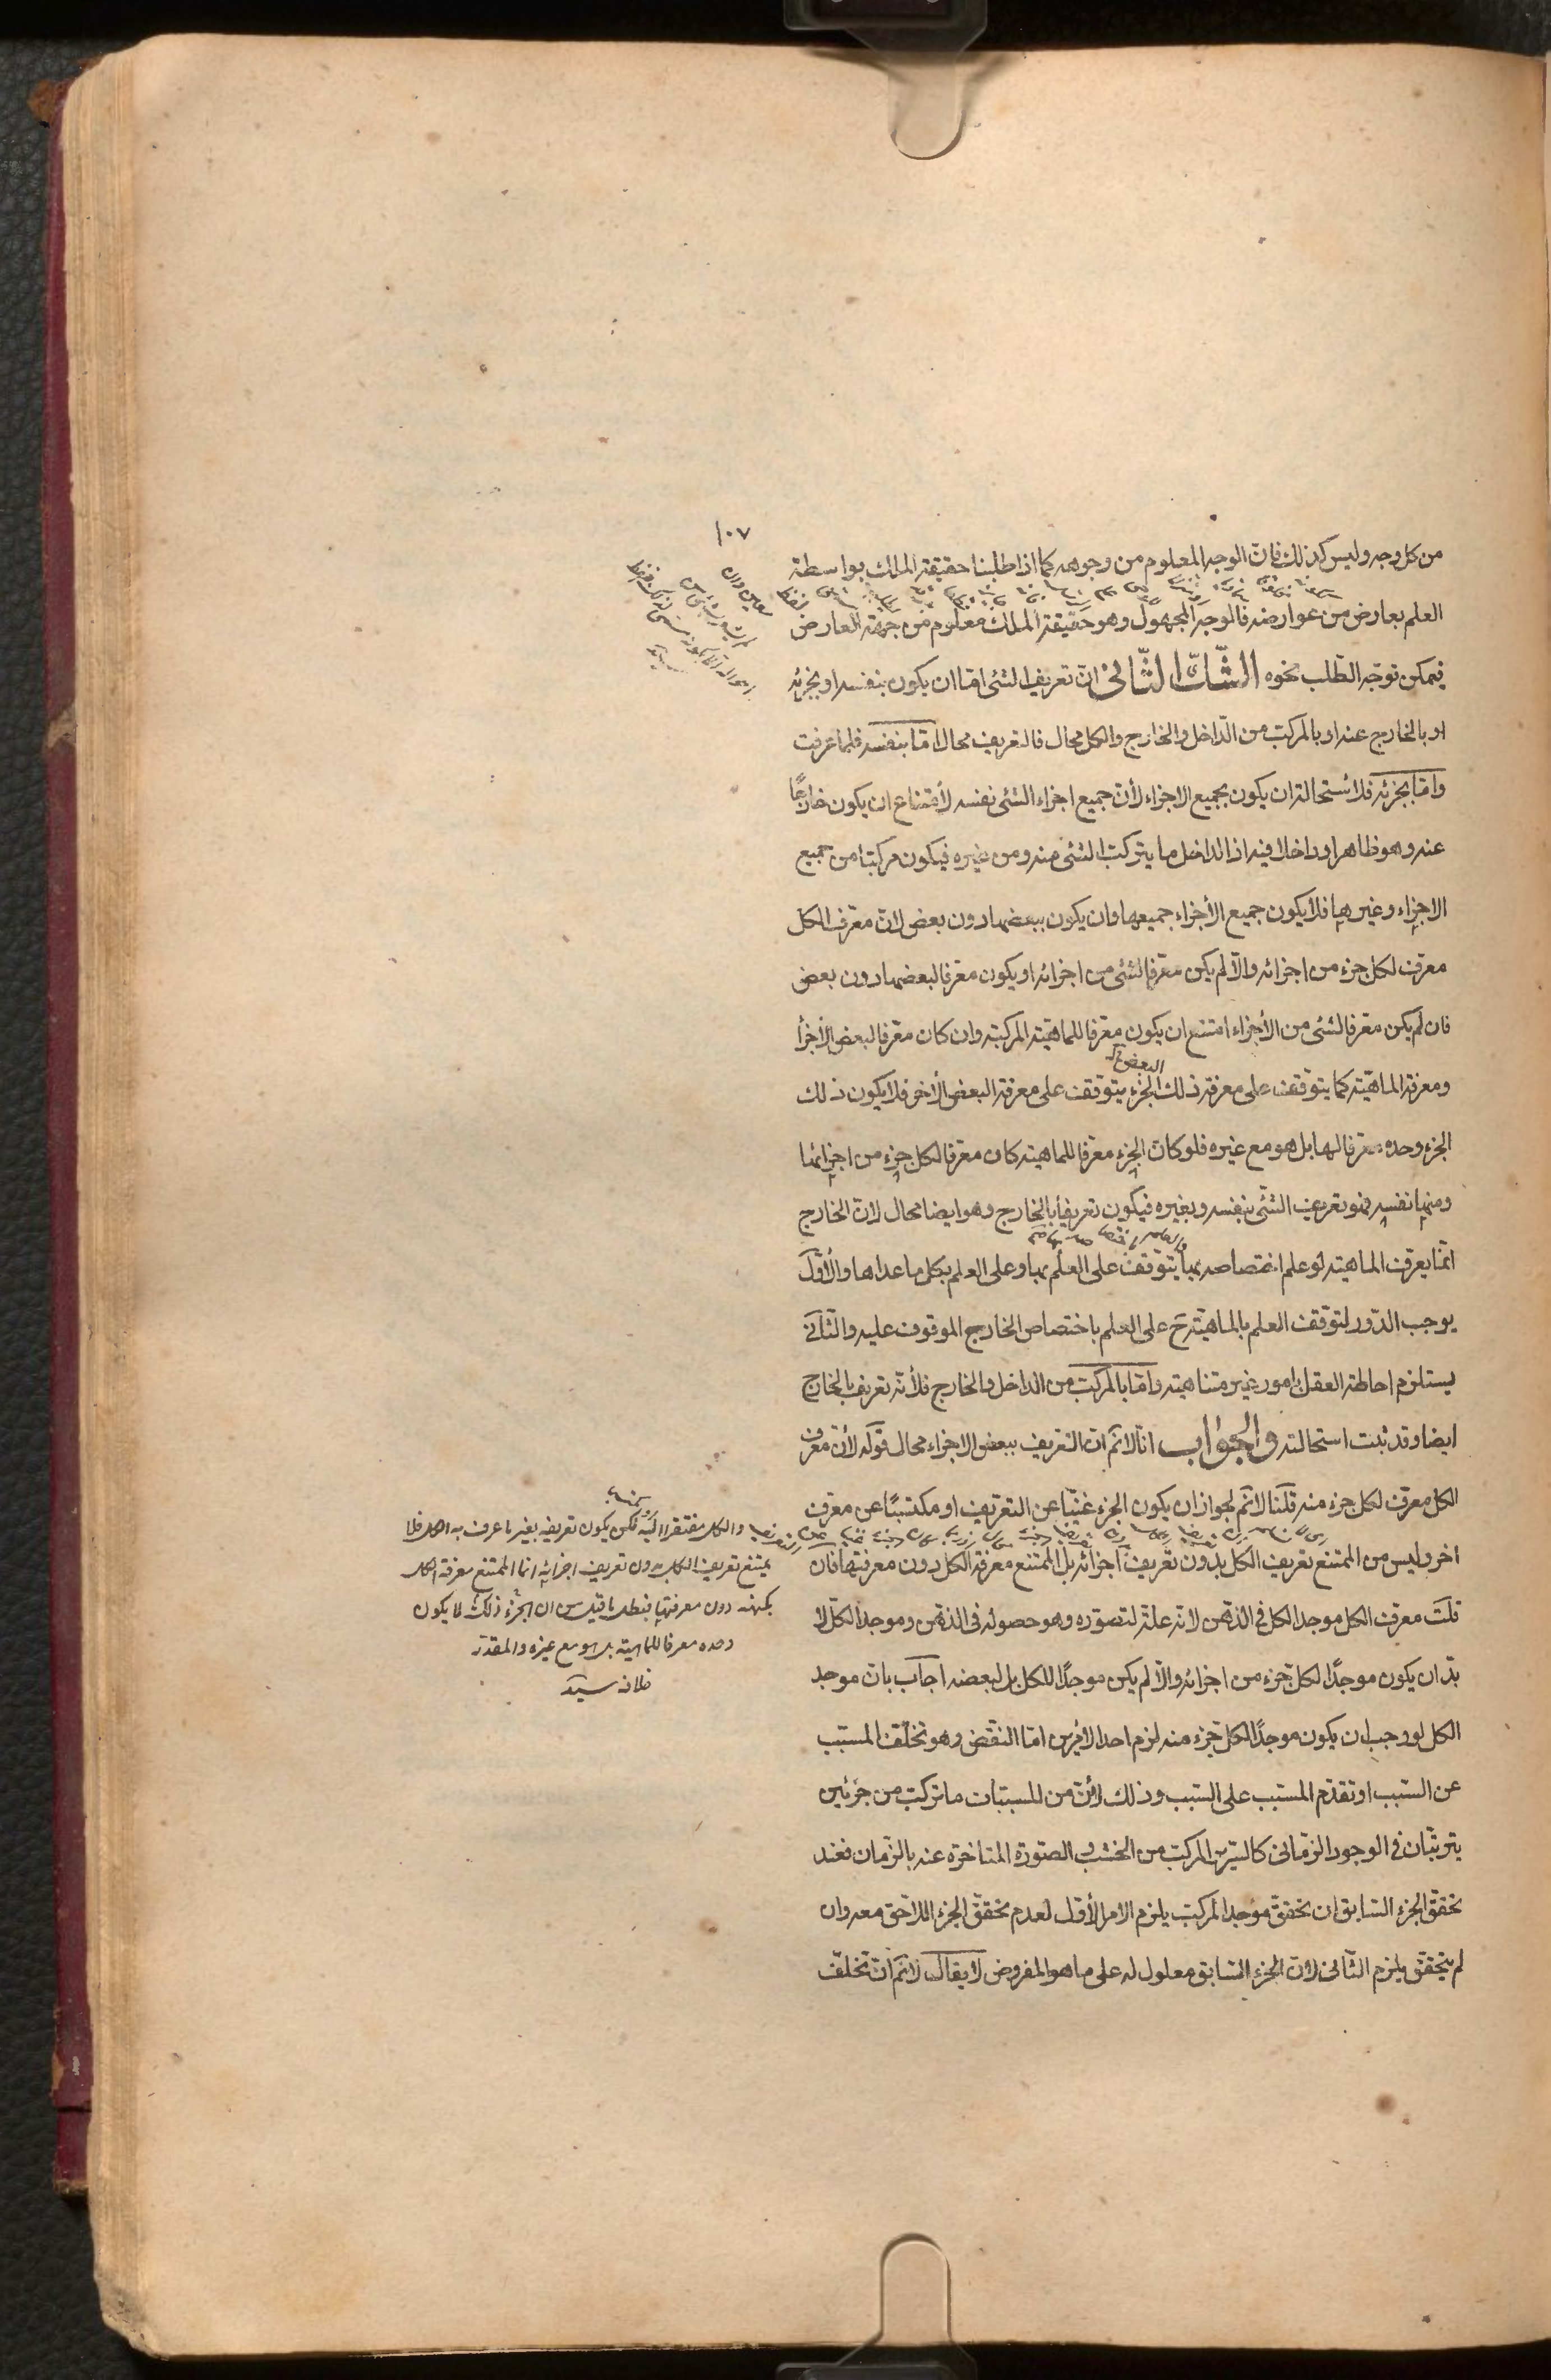 ١٠٧
من كل وجه وليس كذلك فانّ الوجه المعلوم من وجوهه كما اذا طلبنا حقيقة الملك بواسطة
العلم بعارض من عوارضه فالوجه المجهول وهو حقيقة الملك معلوم من جهة العارض
فيمكن توجّه الطّلب نحوه الشّكّ الثّاني انّ تعريف الشئ امّا ان يكون بنفسه او بجزئه
او بالخارج عنه او بالمركّب من الدّاخل والخارج والكل محال فالتعريف محال امّا بنفسه فلما عرفت
وامّا بجزئه فلاستحالة ان يكون بجميع الاجزاء لأن جميع اجزاء الشئ نفسه لأمتناع ان يكون خارجًا
عنه وهو ظاهر او داخلا فيه اذ الداخل ما يتركّب الشئ منه ومن غيره فيكون مركّبا من جميع
الاجزاء وغيرها فلا يكون جميع الأجزاء جميعها وان يكون ببعضها دون بعض لانّ معرّف الكل
معرّف لكل جزء من اجزائه والّا لم يكن معرّفا لشئ من اجزائه او يكون معرّفا لبعضها دون بعض
فان لم يكن معرّفا لشئ من الأجزاء امتنع ان يكون معرّفا للماهيّة المركبة وان كان معرّفا لبعض الأجزأ
البعض
ومعرفة الماهيّة كما يتوقّف على معرفة ذلك الجزء يتوقّف على معرفة البعض الأخر فلا يكون ذلك
الجزء وحده معرّفا لها بل هو مع غيره فلو كان الجزء معرّفا للماهية كان معرّفا لكل جزء من اجزائها
ومنها نفسه فهو تعريف الشّئ بنفسه وبغيره فيكون تعريفا بالخارج وهو ايضا محال لان الخارج
انّما يعرّف الماهية لو علم اختصاصه بها يتوقّف على العلم بها وعلى العلم بكل ما عداها والأوّل
يوجب الدّور لتوقّف العلم بالماهيّة ح على العلم باختصاص الخارج الموقوف عليه والثّاني
يستلزم احاطة العقل بامور غير متناهية وامّا بالمركّب من الداخل والخارج فلأنّه تعريف بالخارج
ايضا وقد ثبت استحالته والجواب انّا لا نم ان التعريف ببعض الاجزاء محال قوله لأنّ معرّف
الكل معرّف لكل جزء منه قلنا لا نم لجواز ان يكون الجزء غنيّا عن التعريف او مكتسبًا عن معرّف
اخر وليس من الممتنع تعريف الكل بدون تعريف اجزائه بل الممتنع معرفة الكل دون معرفتها فان
قلت معرّف الكل موجد الكل في الذهن لانه علة لتصوّره وهو حصوله في الذهن وموجد الكلّ لا
بدّ ان يكون موجدًا لكل جزء من اجزائه والّا لم يكن موجدًا للكل بل لبعضه اجاب بانّ موجد
الكل لو وجب ان يكون موجدًا لكل جزء منه لزم احد الامرين امّا النقض وهو تخلّف المسبّب
عن السّبب او تقدّم المسبّب على السّبب وذلك لأنّ من المسبّبات ما تركّب من جزئين
يترتّبان في الوجود الزّماني كالسّرير المركّب من الخشب والصّورة المتاخرة عنه بالزّمان فعند
تحقّق الجزء السّابق ان تحقّق موجد المركّب يلزم الامر الأوّل لعدم تحقّق الجزء اللاحق معه وان
لم يتحقّق يلزم الثّاني لانّ الجزء السّابق معلول له على ما هو المفروض لا يقال لا نم انّ تخلّف
والكل مفتقرا اليه لكن يكون تعريفه بغير ما عرف به الكل فلا
يمتنع تعريف الكل بدون تعريف اجزائه انما الممتنع معرفة الكل
بكنهه دون معرفتها فبطل ما قيل من ان الجزء ذلك لا يكون
وحده معرفا للماهية بل هو مع غيره والمقدر
خلافه سيد